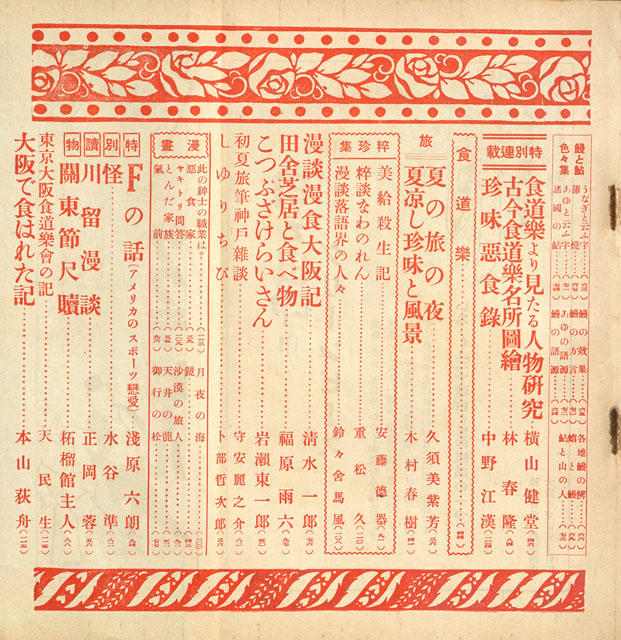 鰻と鮎
色々集
うなぎと云ふ字
蒲燒
あゆと云ふ字
諸國の鮎
鰻の效果
鰻の方言
あゆの語源
鰻の語源
各地鰻の
鮎と鰻
鮎と山の人
特別連載
食道樂より見たる人物研究 橫山健堂
古今食道樂名所圖繪 林春隆
珍味惡食錄 中野江漢
食道樂
旅
夏の旅の夜 久須美紫芳
夏凉し珍味と風景 木村春樹
粹珍集
美給殺生記 安藤德器
粹談なわのれん 重松久
漫談落語界の人々 鈴々舍馬風
漫談漫食大阪記 清水一郎
田舍芝居と食べ物 福原雨六
こつぶざけらいさん 岩瀨東一郎
初夏旅筆神戶雜談 守安麗之介
しゆりちび 卜部哲次郎
漫畫
此の紳士の職業は?
惡食家
ヤキトリ問答
とんだ家族
氣前
月夜の海
鏡
沙漠の旅人
天井の龍
御行の松
特別讀物
Fの話(アメリカのスポーツ戀愛) 淺原六朗
怪 水谷準
川留漫談 正岡蓉
關東節尺贖 柘榴館主人
東京大阪食道樂會の記 天民生
大阪で食はれた記 本山荻舟